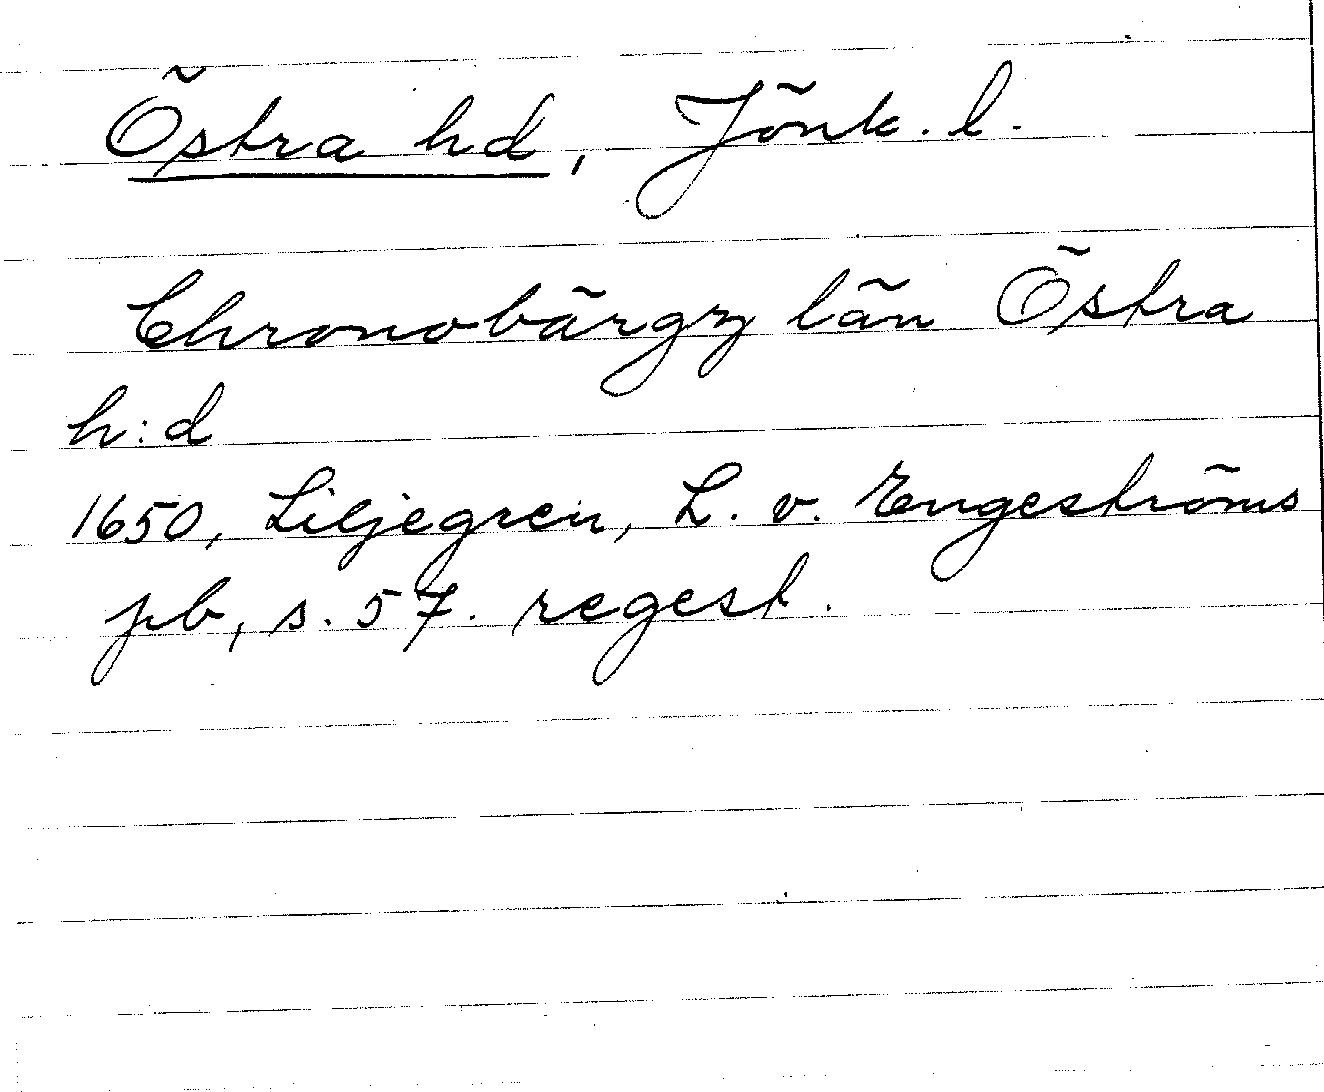 Östra hd, Jönk. l.
Chronobärgz län Östra
h:d
1650, Liljegren, L. v. Engeströms
pb, s. 57. regest.